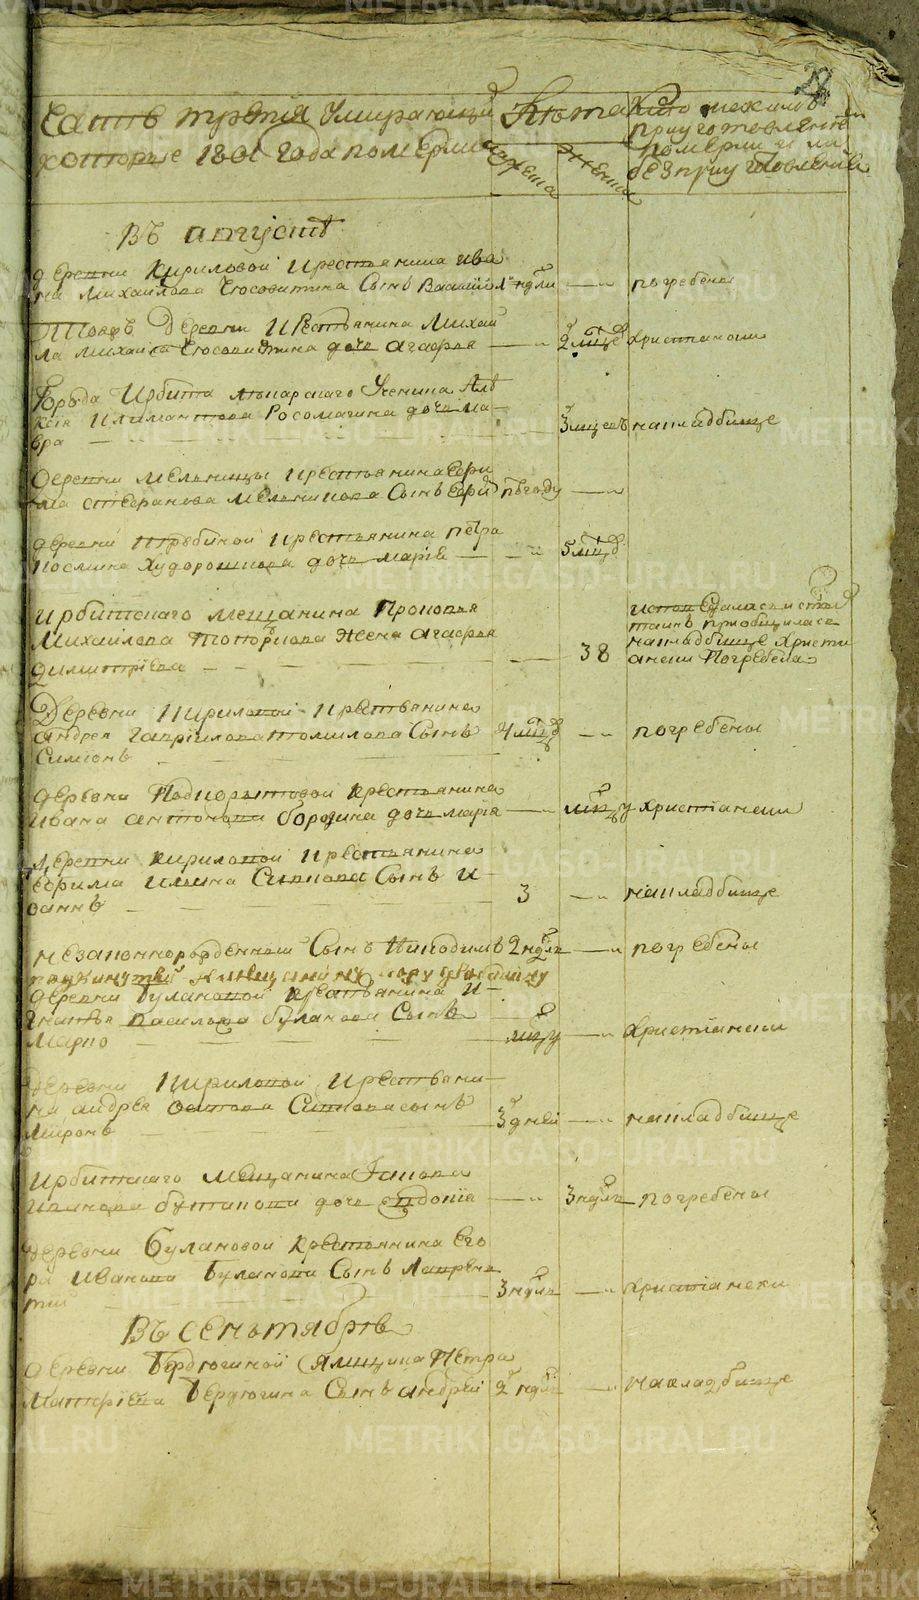 Часть третия Умирающий
которые 1801 года померли
Лѣта
Мужеска
Женска
Кто изъ нихъ
приуготовленъ
померли и ли
безприуготовленiя
Въ августѣ
деревни Кириловой крестьянина ива
на Михаилова Сосовитина Сынъ Василiй 1 ндли
погребены
Деревни крестьянина Михаи
ла Михаила Сосовитина дочь агафья
2 мцъ
христiански
Города Ирбита лѣкарскаго Ученика Алѣ
ксѣя Росомагина дочь ма-
вра
3 мцовъ
накладбище
деревни Мельницы крестьянина Ефи
ма стефанова Мельникова Сынъ
году
деревни крестьянина петра
Козмина Худорошкова дочь марiя
5 мцъ
Ирбитскаго мещанина Прокопья
Михаилова Топоркова Жена агафья
димитрiева
38
исповѣдалась и святыхъ
таинъ прiобщиласе
накладбище Христи
ански Погребена
Деревни Кириловой крестьянина
андрея гаврiилова томилова Сынъ
Симiонъ
4 мцъ
погребены
деревни Подкорытовой крестьянина
Ивана антонова бородина дочь марiя
мцу
христiански
деревни кириловой крестьянина
ефима Ильина Ситкова Сынъ И-
оаннъ
3
накладбище
незаконнорожденный Сынъ Никодимъ
2 ндль
погребены
деревни булановой крестьянина И-
гнатья василева буланова Сынъ
Марко
мцу
Христiански
Деревни Кириловой крестьяни-
на андрея Ситкова сынъ
Миронъ
3 дней
накладбище
ирбитскаго мещанина
Иванова дочь евдокiя
3 ндль
погребены
деревни булановой крестьянина Его
ра Иванова Буланова Сынъ Лаврен
тiй
3 ндль
христiански
Въ сеньтябрѣ
деревни Бердюгиной Ямщика Петра
Матфiева Бердюгина Сынъ андрей
2 ндль
накладбище
METRIKI.GASO-URAL.RU